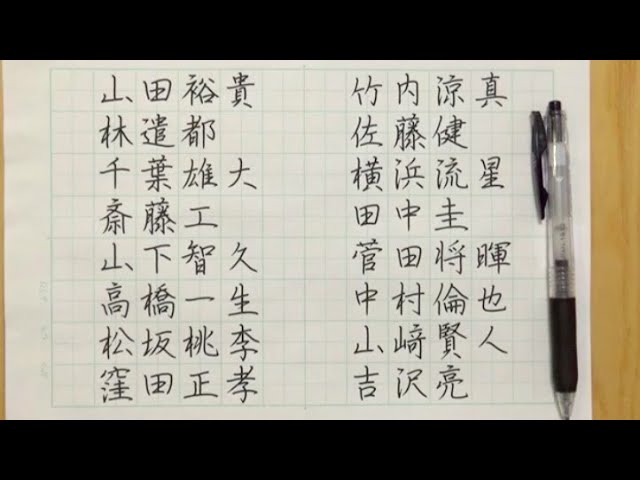 山田裕貴
林遣都
千葉雄大
斎藤工
山下智久
高橋一生
松坂桃李
窪田正孝
竹内涼真
佐藤健
横浜流星
田中圭
菅田将暉
中村倫也
山﨑賢人
吉沢亮